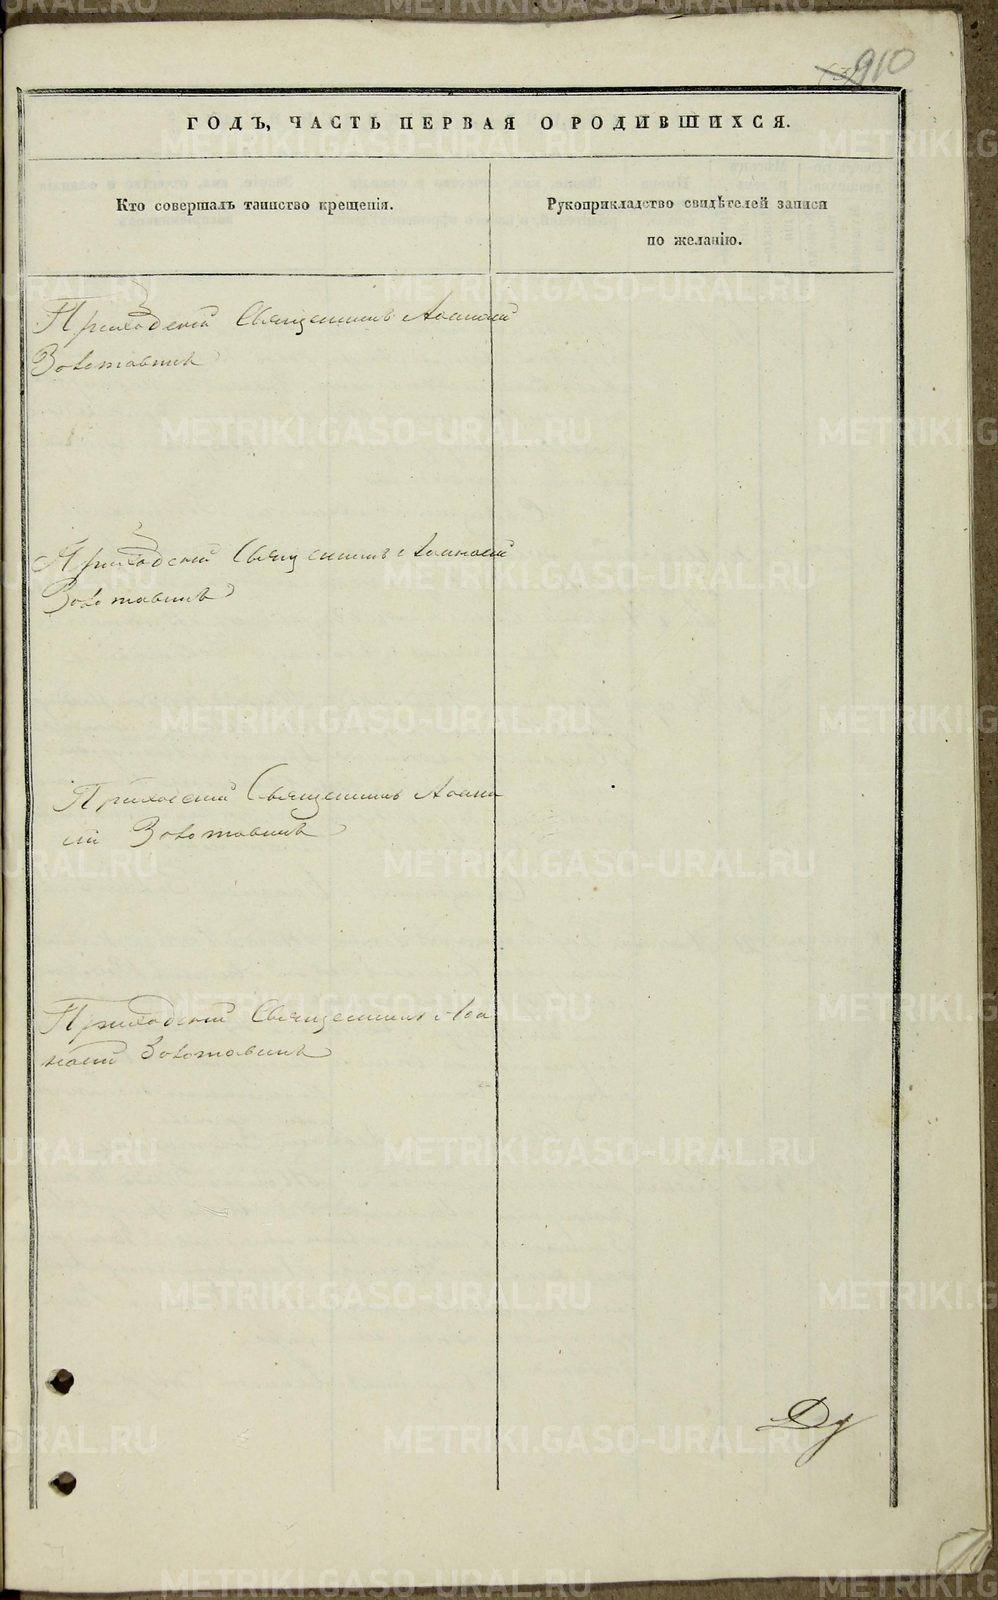 910
ГОДЪ, ЧАСТЬ ПЕРВАЯ О РОДИВШИХСЯ.
Кто совершалъ таинство крещенія.
Рукоприкладство свидѣтелей записи
по желанію.
Приходскій Священникъ Аѳанасій
Золотавинъ
Приходскій Священникъ Аѳанасій
Золотавинъ
Приходскій Священникъ Аѳана
сій Золотавинъ
Приходскій Священникъ Аѳа
насій Золотавинъ
METRIKI.GASO-URAL.RU